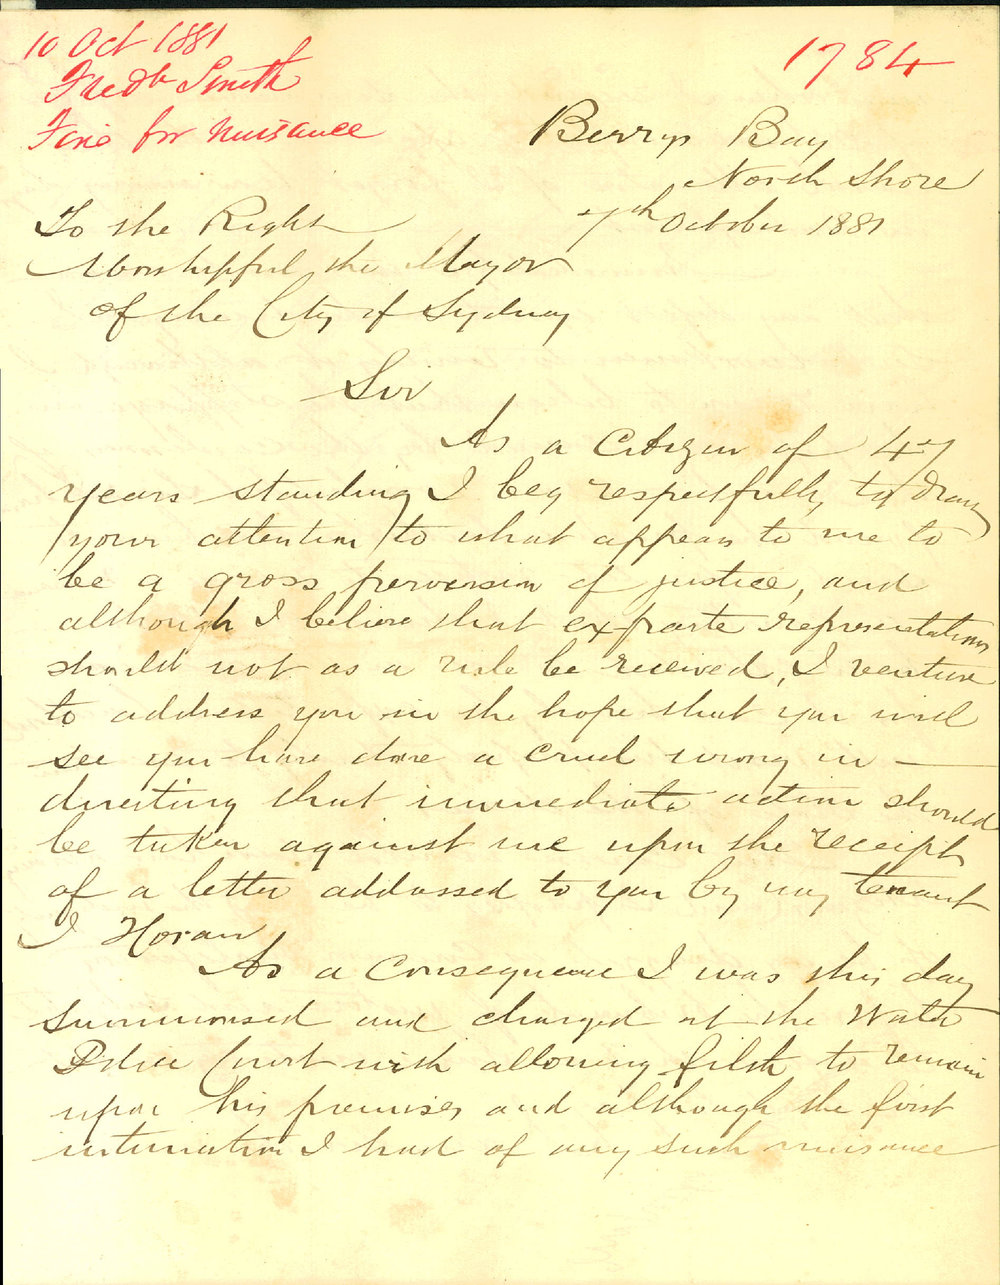 10 Oct 1881
Fredk Smith
Fine for nuisance
1784
Berrys Bay
North Shore
7th October 1881
To the Right
Worshipful the Mayor
of the City of Sydney
Sir
As a Citizen of 47
years standing I beg respectfully to draw
your attention to what appears to me to
be a gross perversion of justice, and
although I believe that exparte representations
should not as a rule be received, I venture
to address you in the hope that you will
see you have done a cruel wrong in
directing that immediate action should
be taken against me upon the receipt
of a letter addressed to you by my tenant
J Horan
As a Consequence I was this day
Summonsed and charged at the Water
Police Court with allowing filth to remain
upon his premises and although the first
intimation I had of any such nuisance